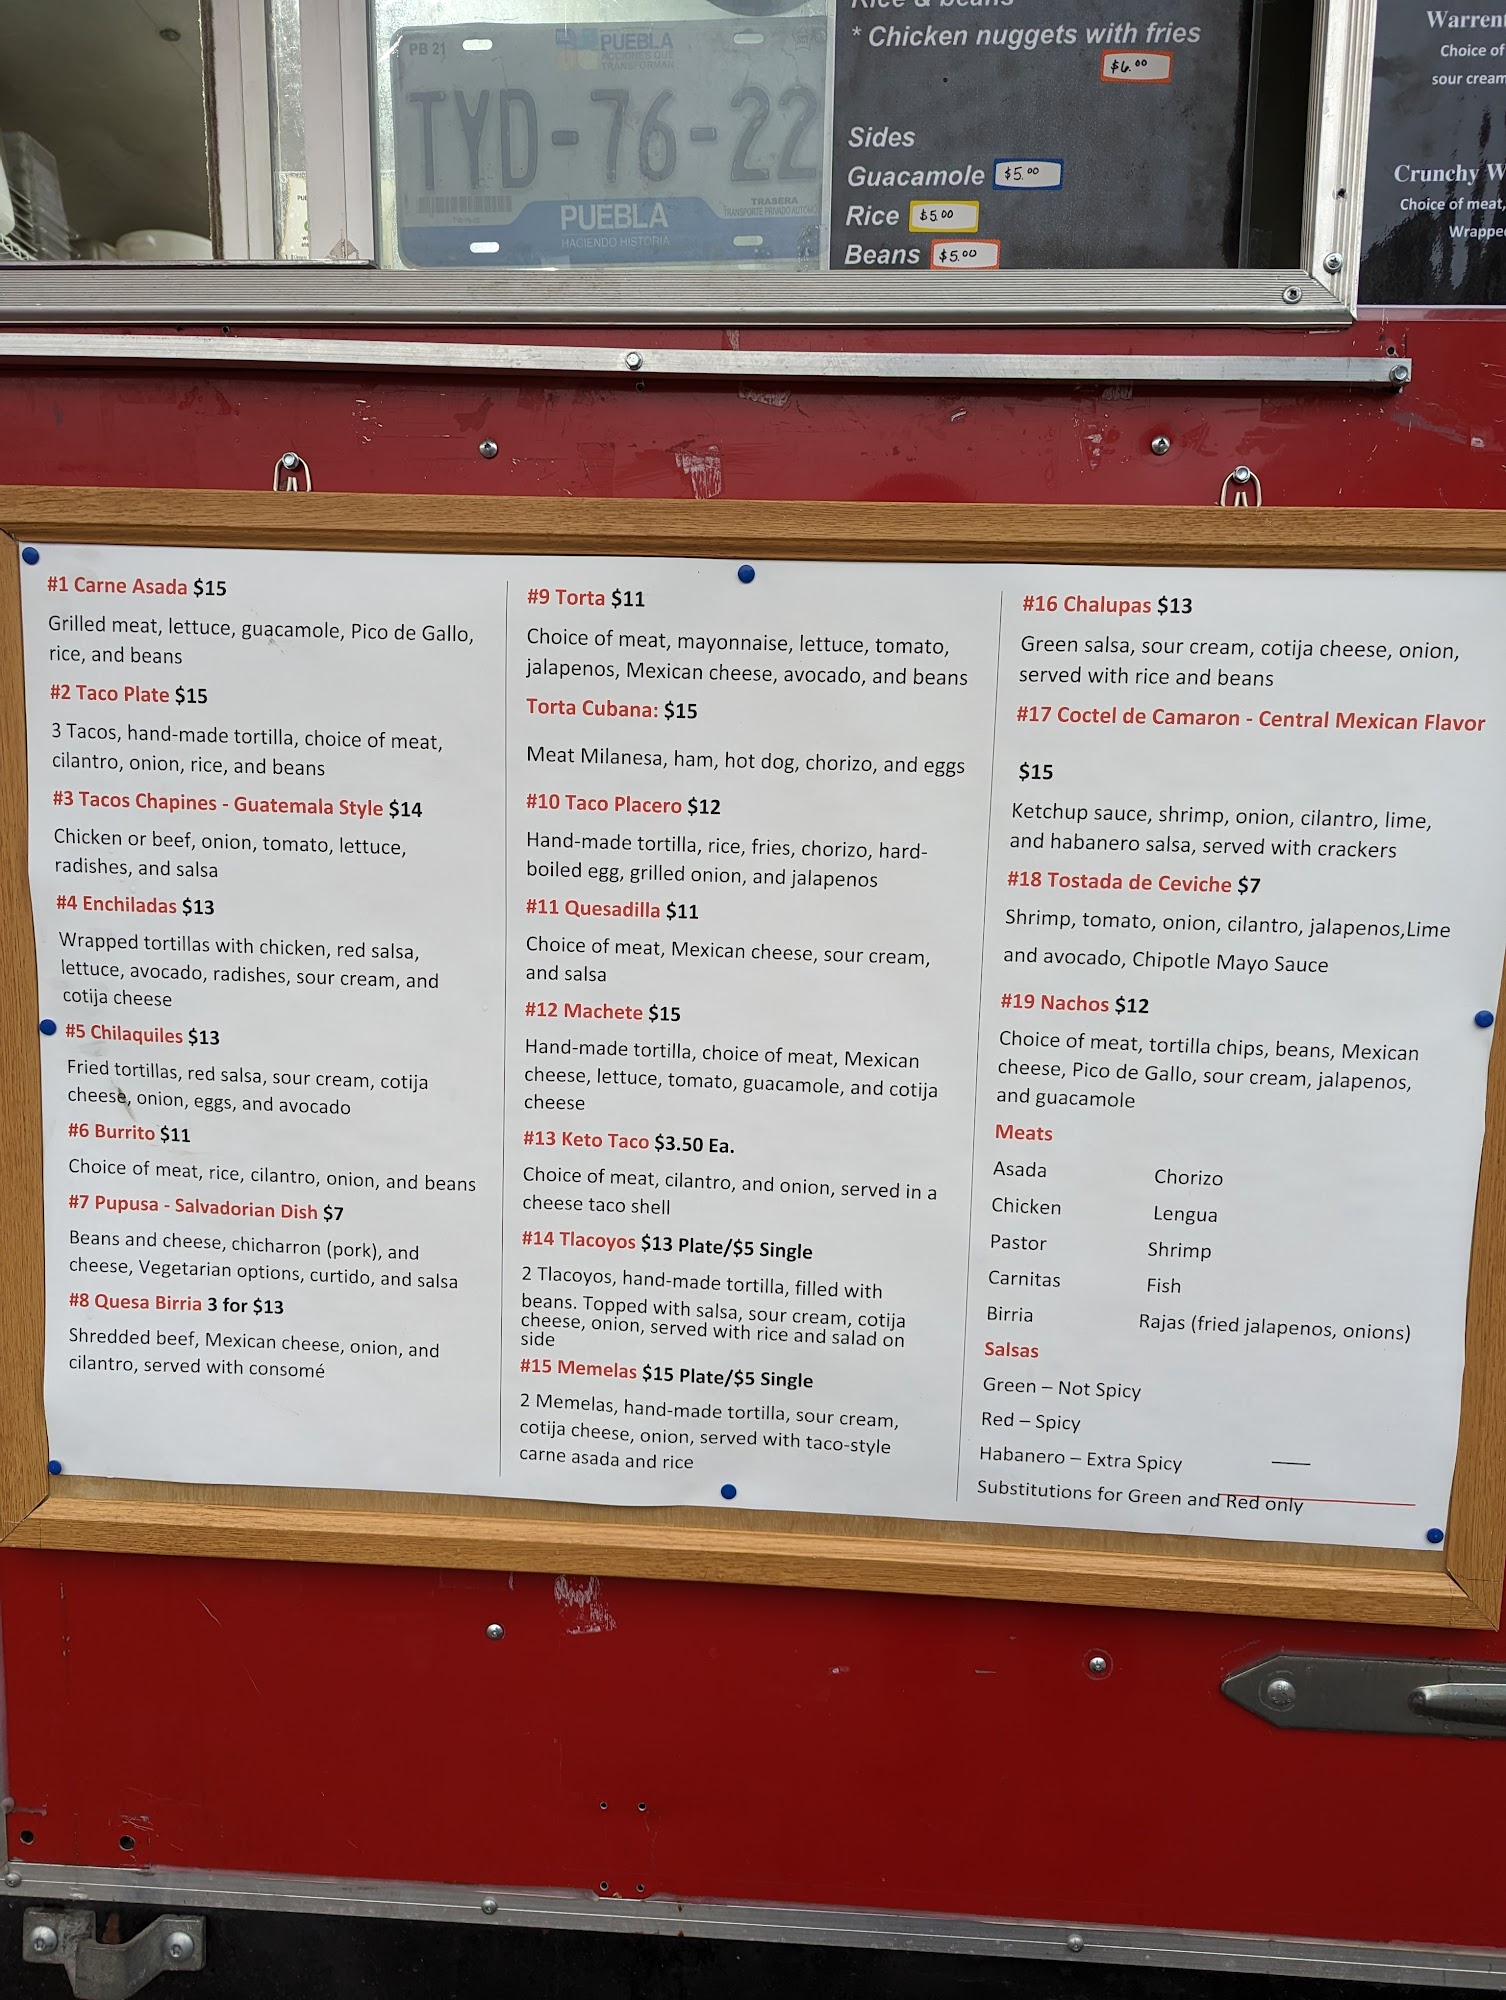 PB 21
PUEBLA
ACCIONES QUE
TRANSFORMAN
TYD-76-22
TRASERA
TRANSPORTE PRIVADO AUTOMO
PUEBLA
HACIENDO HISTORIA
Rice & beans
* Chicken nuggets with fries
$6.00
Sides
Guacamole $5.00
Rice $5.00
Beans $5.00
Choice of
sour cream
Crunchy W
Choice of meat,
Wrapped
#1 Carne Asada $15
Grilled meat, lettuce, guacamole, Pico de Gallo,
rice, and beans
#2 Taco Plate $15
3 Tacos, hand-made tortilla, choice of meat,
cilantro, onion, rice, and beans
#3 Tacos Chapines - Guatemala Style $14
Chicken or beef, onion, tomato, lettuce,
radishes, and salsa
#4 Enchiladas $13
Wrapped tortillas with chicken, red salsa,
lettuce, avocado, radishes, sour cream, and
cotija cheese
#5 Chilaquiles $13
Fried tortillas, red salsa, sour cream, cotija
cheese, onion, eggs, and avocado
#6 Burrito $11
Choice of meat, rice, cilantro, onion, and beans
#7 Pupusa - Salvadorian Dish $7
Beans and cheese, chicharron (pork), and
cheese, Vegetarian options, curtido, and salsa
#8 Quesa Birria 3 for $13
Shredded beef, Mexican cheese, onion, and
cilantro, served with consomé
#9 Torta $11
Choice of meat, mayonnaise, lettuce, tomato,
jalapenos, Mexican cheese, avocado, and beans
Torta Cubana: $15
Meat Milanesa, ham, hot dog, chorizo, and eggs
#10 Taco Placero $12
Hand-made tortilla, rice, fries, chorizo, hard-
boiled egg, grilled onion, and jalapenos
#11 Quesadilla $11
Choice of meat, Mexican cheese, sour cream,
and salsa
#12 Machete $15
Hand-made tortilla, choice of meat, Mexican
cheese, lettuce, tomato, guacamole, and cotija
cheese
#13 Keto Taco $3.50 Ea.
Choice of meat, cilantro, and onion, served in a
cheese taco shell
#14 Tlacoyos $13 Plate/$5 Single
2 Tlacoyos, hand-made tortilla, filled with
beans. Topped with salsa, sour cream, cotija
cheese, onion, served with rice and salad on
side
#15 Memelas $15 Plate/$5 Single
2 Memelas, hand-made tortilla, sour cream,
cotija cheese, onion, served with taco-style
carne asada and rice
#16 Chalupas $13
Green salsa, sour cream, cotija cheese, onion,
served with rice and beans
#17 Coctel de Camaron - Central Mexican Flavor
$15
Ketchup sauce, shrimp, onion, cilantro, lime,
and habanero salsa, served with crackers
#18 Tostada de Ceviche $7
Shrimp, tomato, onion, cilantro, jalapenos,Lime
and avocado, Chipotle Mayo Sauce
#19 Nachos $12
Choice of meat, tortilla chips, beans, Mexican
cheese, Pico de Gallo, sour cream, jalapenos,
and guacamole
Meats
Asada Chorizo
Chicken Lengua
Pastor Shrimp
Carnitas Fish
Birria Rajas (fried jalapenos, onions)
Salsas
Green – Not Spicy
Red – Spicy
Habanero – Extra Spicy
Substitutions for Green and Red only